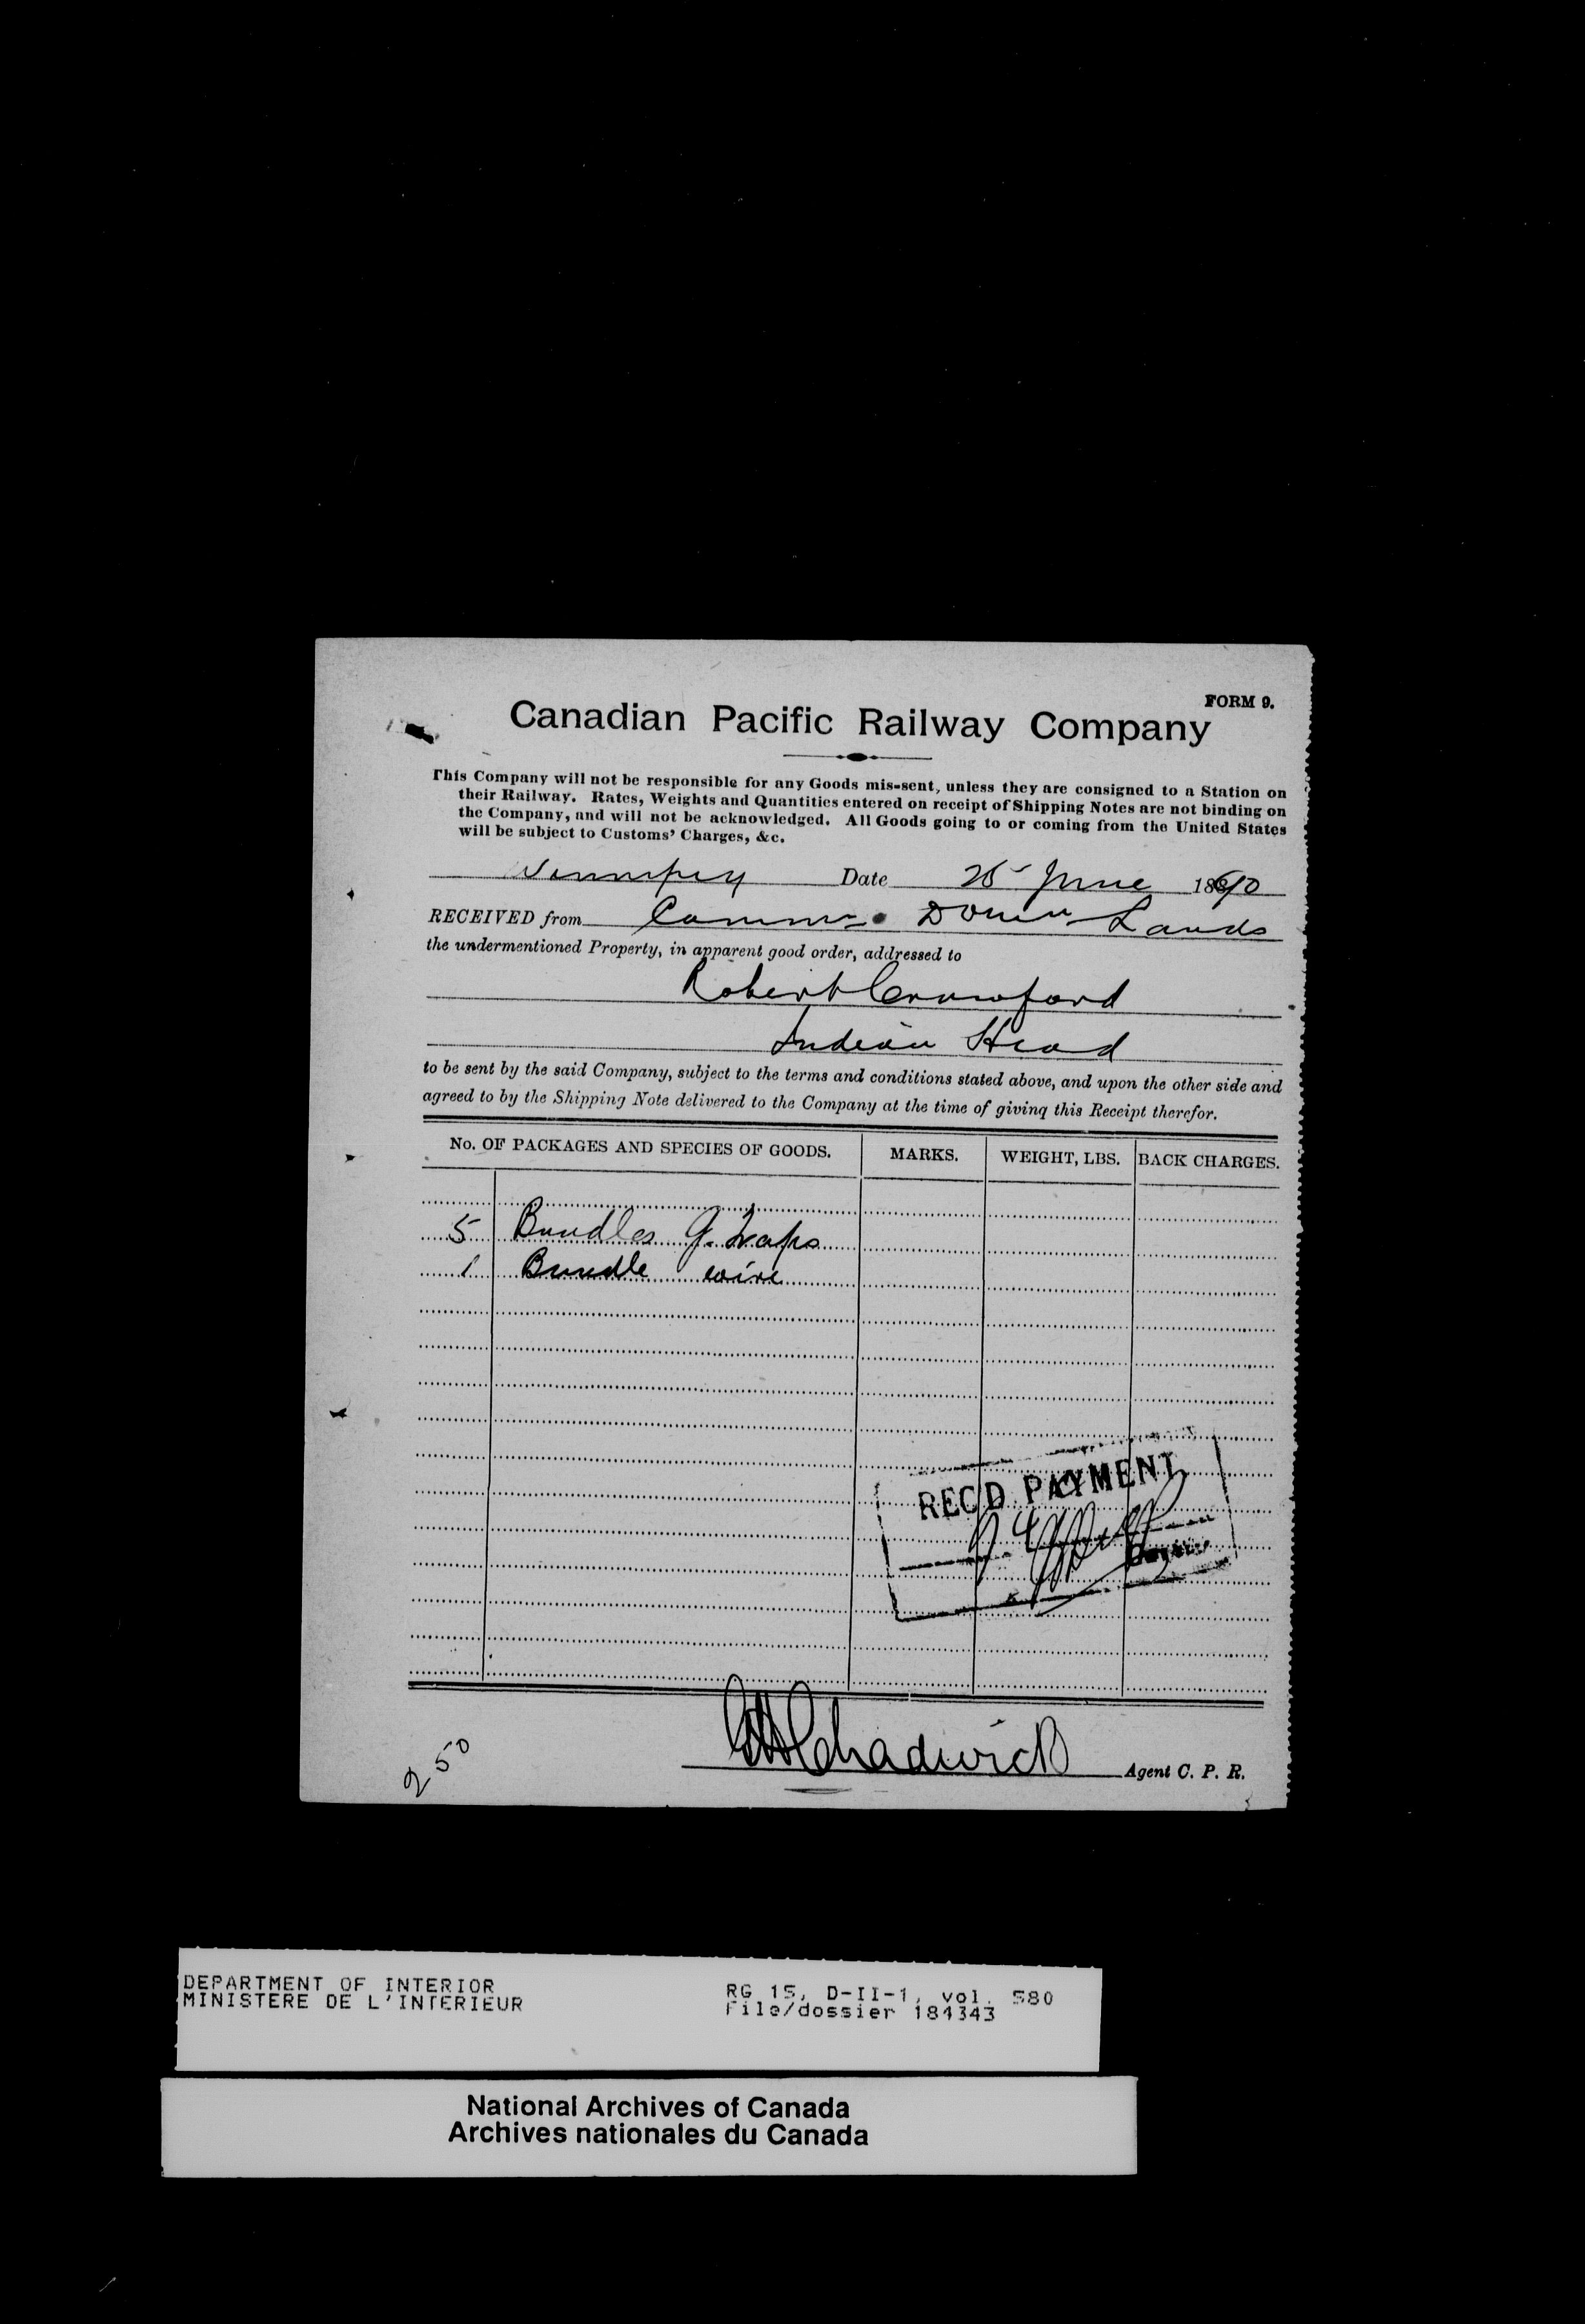 FORM 9.
Canadian Pacific Railway Company
This Company will not be responsible for any Goods mis-sent, unless they are consigned to a Station on
their Railway. Rates, Weights and Quantities entered on receipt of Shipping Notes are not binding on
the Company, and will not be acknowledged. All Goods going to or coming from the United States
will be subject to Customs' Charges, &c.
Winnipeg Date 25 June 1890
RECEIVED from Commr. Domn Lands
the undermentioned Property, in apparent good order, addressed to
Robert Crawford
Indian Head
to be sent by the said Company, subject to the terms and conditions stated above, and upon the other side and
agreed to by the Shipping Note delivered to the Company at the time of giving this Receipt therefor.
No. OF PACKAGES AND SPECIES OF GOODS. MARKS. WEIGHT, LBS. BACK CHARGES.
5 Bundles G. Traps
1 Bundle wire
REC'D PAYMENT
Chadwick Agent C. P. R.
2 50
DEPARTMENT OF INTERIOR
MINISTERE DE L'INTERIEUR
RG 15, D-II-1, vol. 580
File/dossier 184343
National Archives of Canada
Archives nationales du Canada